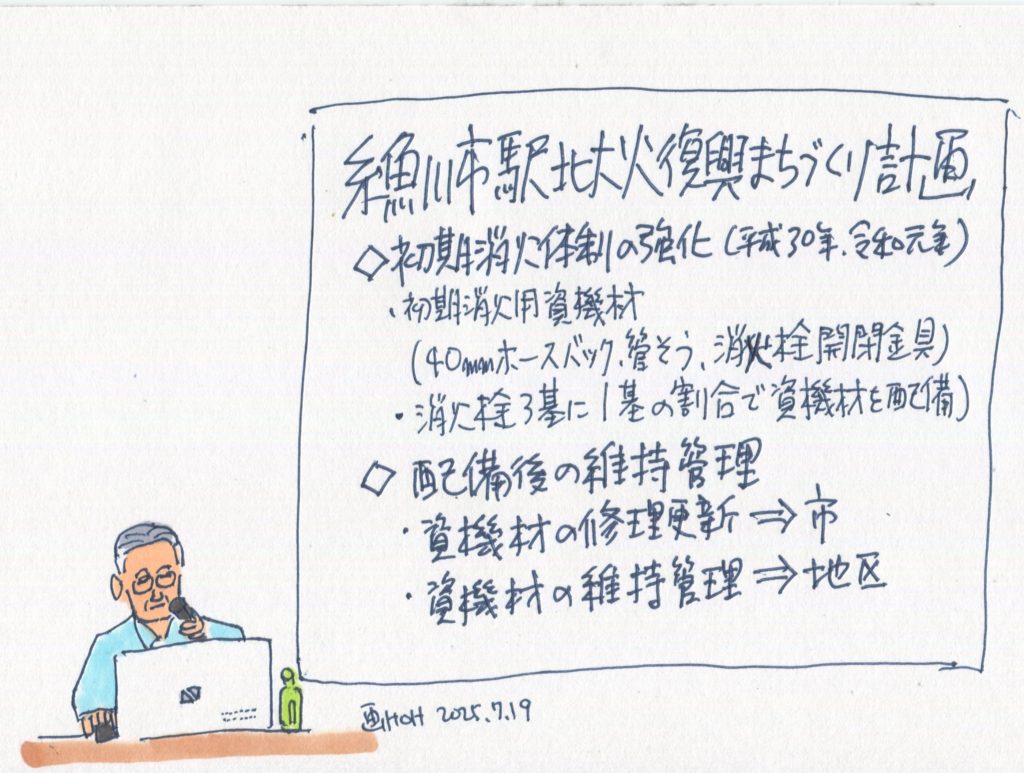 糸魚川市駅北大火復興まちづくり計画
◇初期消火体制の強化(平成30年、令和元年)
・初期消火用資機材
(40mmホースバック、管そう、消火栓開閉金具)
・消火栓3基に1基の割合で資機材を配備)
◇配備後の維持管理
・資機材の修理更新⇒市
・資機材の維持管理⇒地区
画HOH 2025.7.19